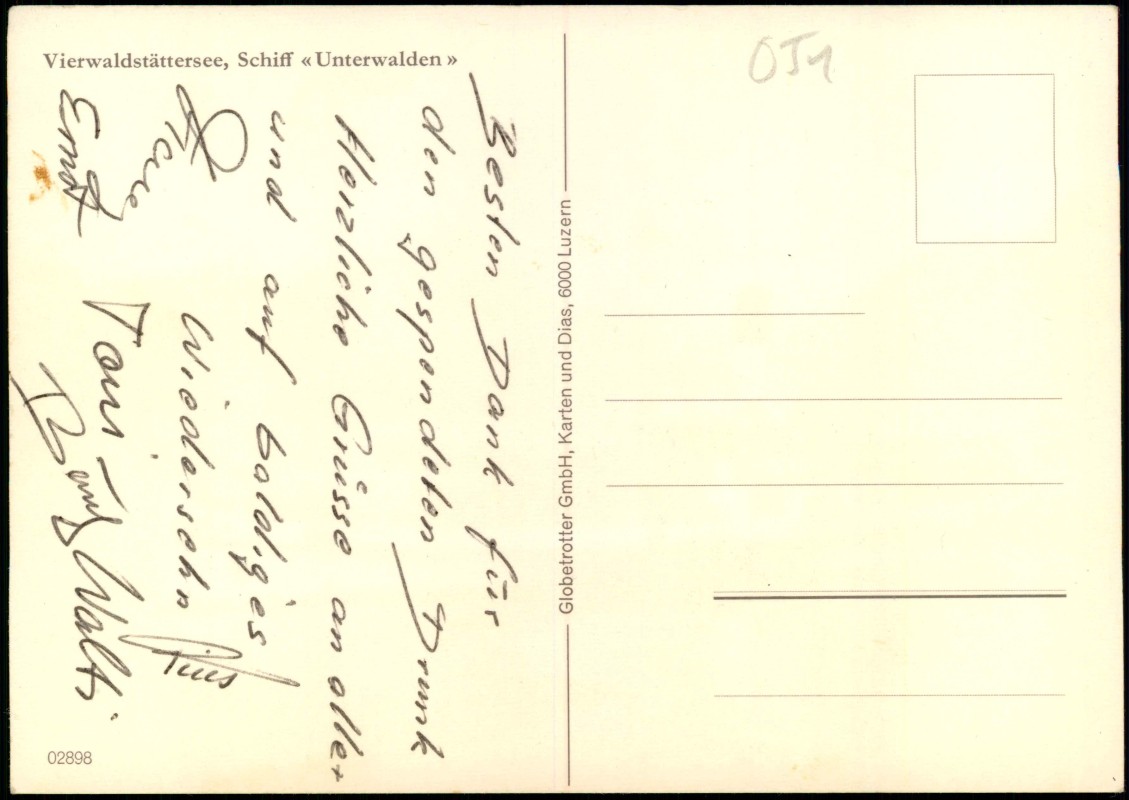 Vierwaldstättersee, Schiff «Unterwalden»
Besten Dank für
den gespendeten Drunk
Herzliche Grüsse an alle+
und auf baldiges
Wiedersehn
Pius
Ernst
Toni
Walti
02898
Globetrotter GmbH, Karten und Dias, 6000 Luzern